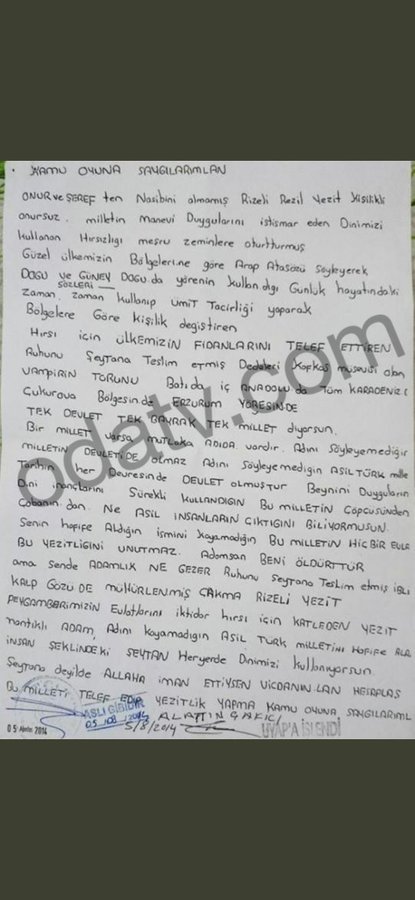 KAMU OYUNA SAYGILARIMLAN
ONUR ve ŞEREF ten Nasibini almamış Rizeli Rezil Yezit Kişilikli
onursuz. milletin Manevi Duygularını istismar eden Dinimizi
kullanan Hırsızlığı meşru zeminlere oturtturmuş
Güzel ülkemizin Bölgelerine göre Arap Atasözü Söyleyerek
DOĞU ve GÜNEY DOĞU da yörenin kullandığı Günlük hayatındaki
SÖZLERİ
zaman. zaman kullanıp Ümit Tacirliği yaparak
Bölgelere Göre kişilik değiştiren
Hırsı için ülkemizin FİDANLARINI TELEF ETTİREN
Ruhunu Şeytana Teslim etmiş Dedeleri Kafkas musevisi olan
VAMPİRİN TORUNU Batıda iç ANADOLU da Tüm KARADENİZ
Çukurova Bölgesinde ERZURUM YÖRESİNDE
TEK DEVLET TEK BAYRAK TEK MİLLET diyorsun.
Bir MİLLET varsa mutlaka ADIDA vardır. Adını Söyleyemediğin
MİLLETİN DEVLETİDE OLMAZ Adını Söyleyemediğin ASİL TÜRK
Tarihin her Devresinde DEVLET olmuştur Beynini Duyguların
Dini inançlarını Sürekli kullandığın Bu MİLLETİN Çöpçüsünden
Çobanın dan. Ne ASİL İNSANLARIN ÇIKTIĞINI BİLİYORMUSUN.
Senin hafife Aldığın ismini koyamadığın BU MİLLETİN HİÇ BİR
BU YEZİTLİĞİNİ UNUTMAZ. Adamsan BENİ ÖLDÜRTTÜR
ama Sende ADAMLIK NE GEZER Ruhunu Şeytana Teslim etmiş
KALP GÖZÜ DE MÜHÜRLENMİŞ ÇAKMA RİZELİ YEZİT
PEYGAMBERİMİZİN Evlatlarını iktidar hırsı için KATLEDEN YEZİT
mantıklı ADAM. Adını koyamadığın ASİL TÜRK milletini Hafife
İNSAN ŞEKLİNDEKİ ŞEYTAN Heryerde Dinimizi kullanıyorsun.
Şeytana değilde ALLAHA İMAN ETTİYSEN VİCDANINLAN HESAPLAŞ
Bu MİLLETİ TELEF YEZİTLİK YAPMA KAMU OYUNA
ASLI GİBİDİR
05/08/2014
ALATTİN ÇAKICI
5/8/2014
05 Ağustos 2014
UYAP'A İŞLENDİ
odatv.com